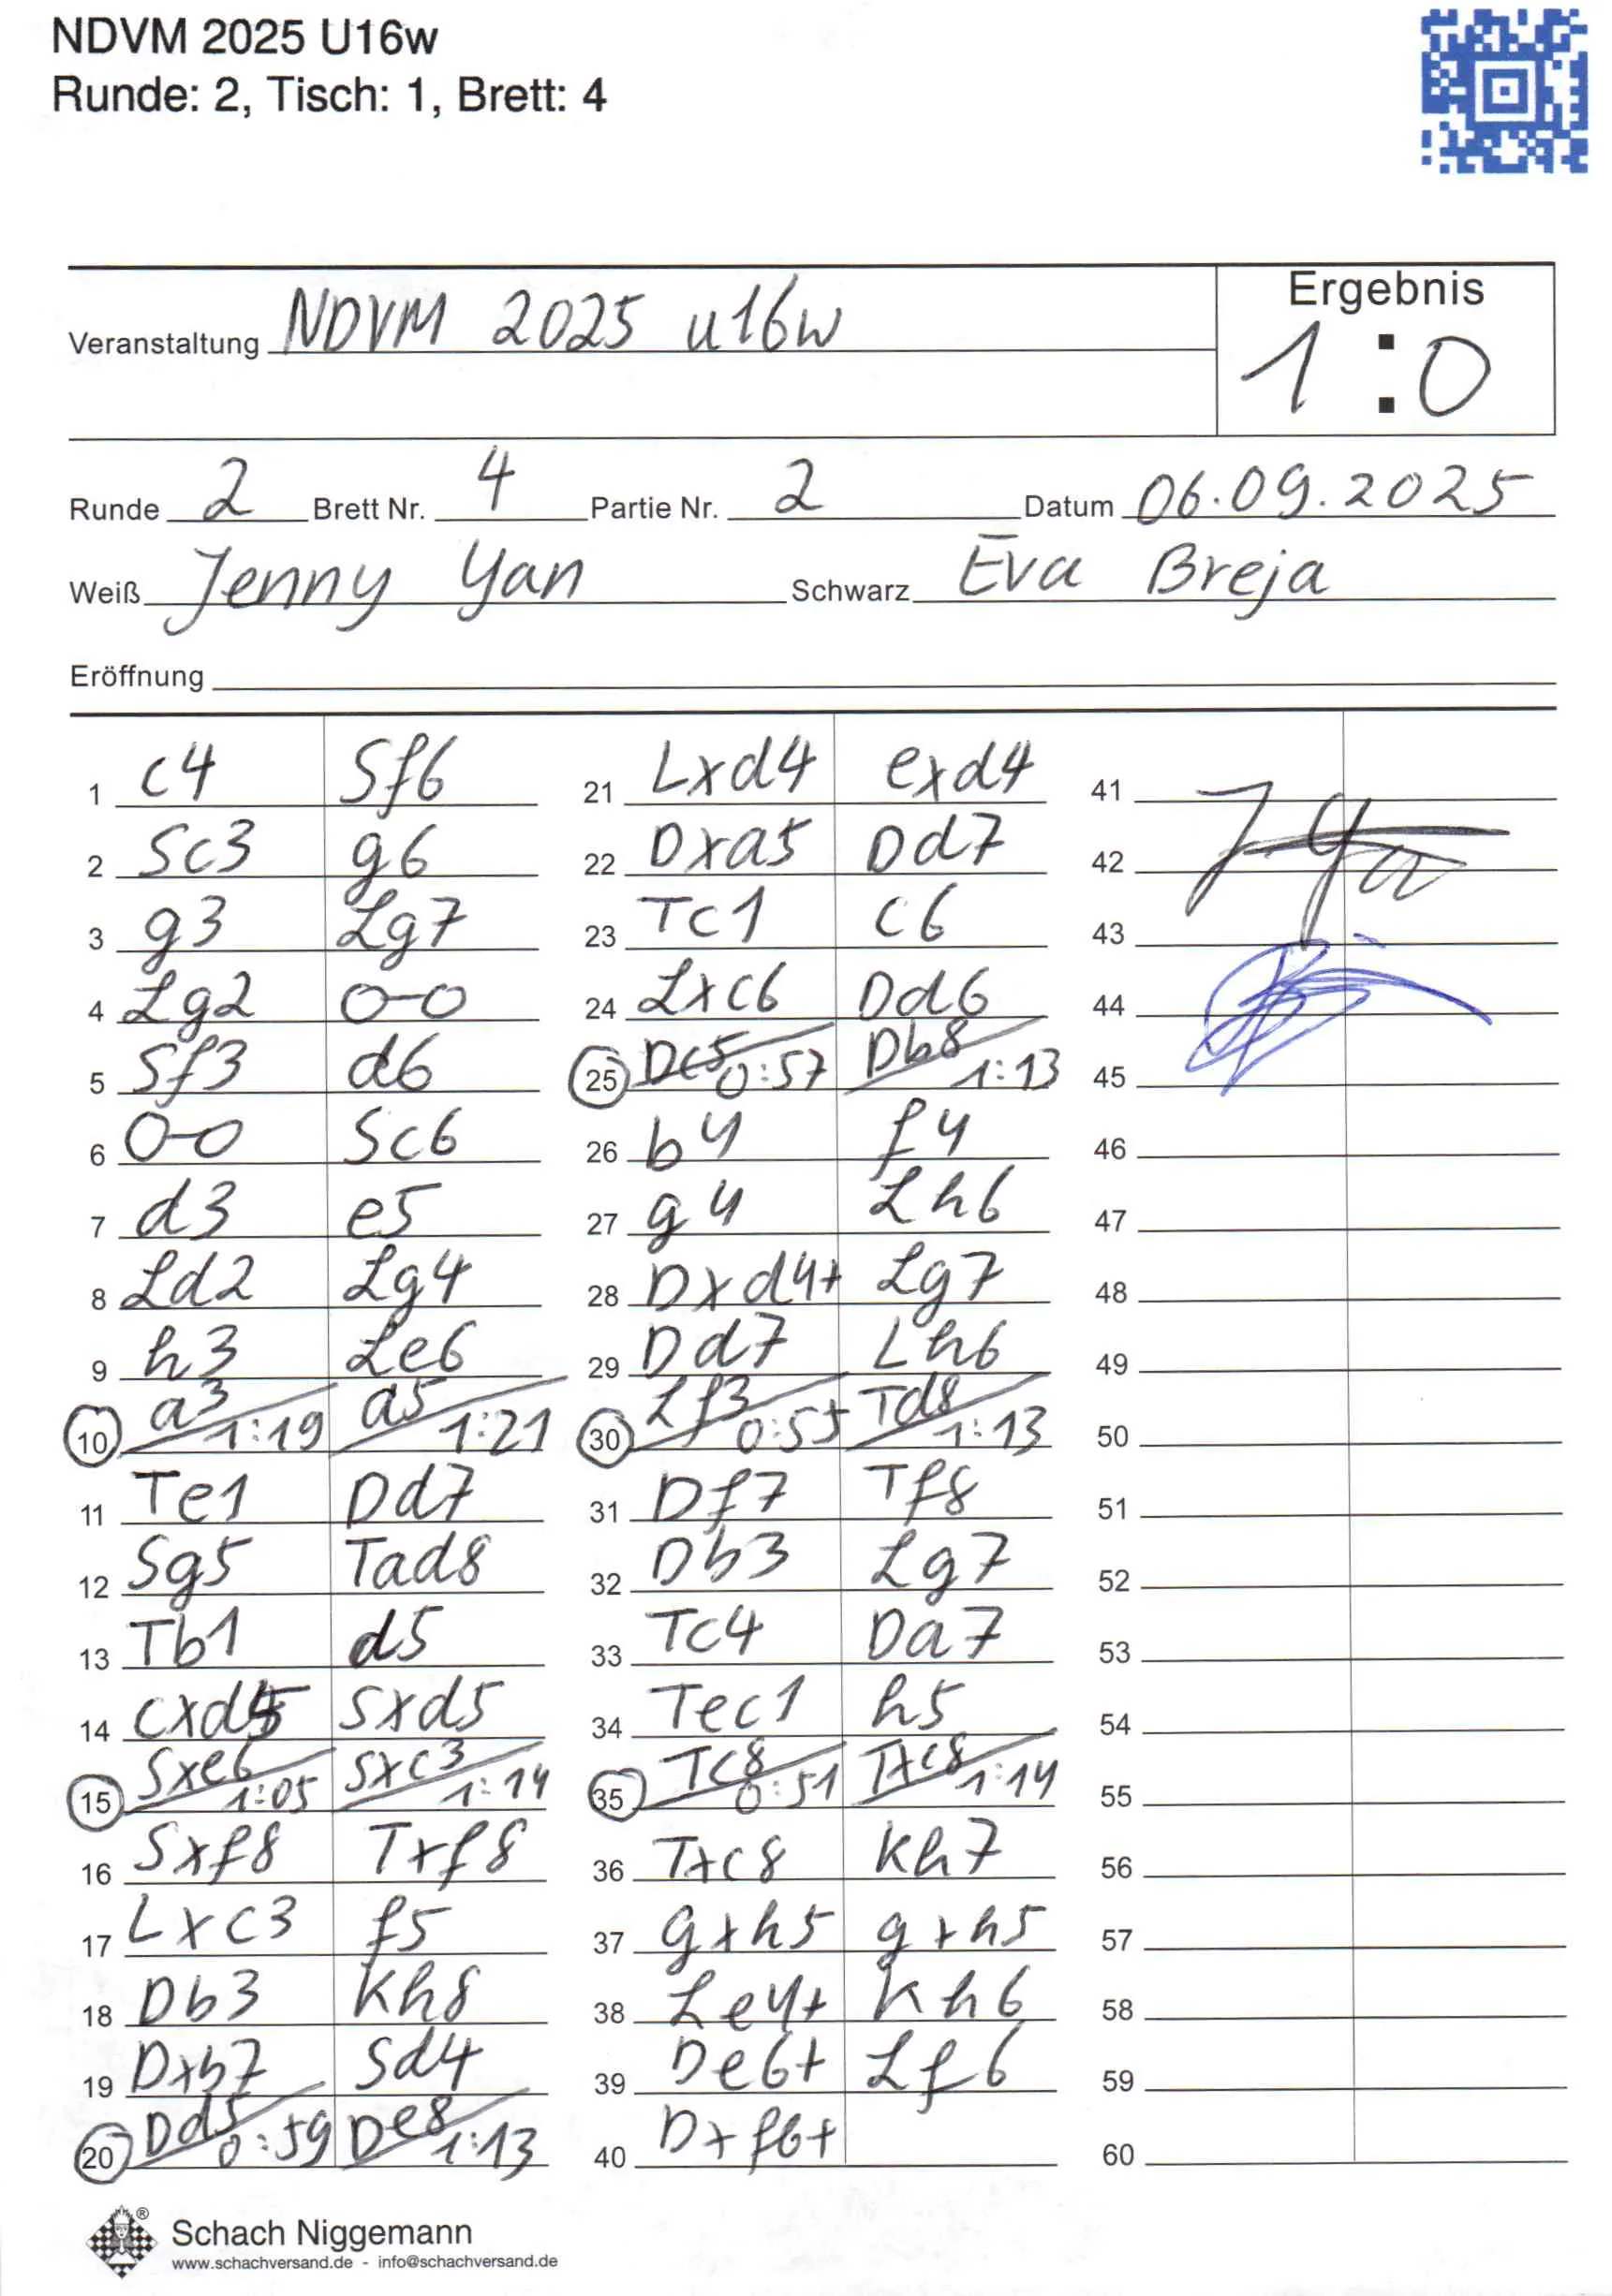 NDVM 2025 U16w
Runde: 2, Tisch: 1, Brett: 4
Ergebnis
Veranstaltung NDVM 2025 u16w
1 : 0
Runde 2 Brett Nr. 4 Partie Nr. 2 Datum 06.09.2025
Weiß Jenny Yan Schwarz Eva Breja
Eröffnung
1 c4 Sf6
2 Sc3 g6
3 g3 Lg7
4 Lg2 0-0
5 Sf3 d6
6 0-0 Sc6
7 d3 e5
8 Ld2 Lg4
9 h3 Le6
10 a3 1:19 a5 1:21
11 Te1 Dd7
12 Sg5 Tad8
13 Tb1 d5
14 cxd5 Sxd5
15 Sxe6 1:05 Sxc3 1:14
16 Sxf8 Txf8
17 Lxc3 f5
18 Db3 Kh8
19 Dxb7 Sd4
20 Dd5 0:59 De8 1:13
21 Lxd4 exd4
22 Dxa5 Dd7
23 Tc1 c6
24 Lxc6 Dd6
25 Dc5 0:57 Db8 1:13
26 b4 f4
27 g4 Lh6
28 Dxd4+ Lg7
29 Dd7 Lh6
30 Lf3 0:55 Td8 1:13
31 Df7 Tf8
32 Db3 Lg7
33 Tc4 Da7
34 Tec1 h5
35 Tc8 0:51 Txc8 1:14
36 Txc8 Kh7
37 gxh5 gxh5
38 Le4+ Kh6
39 De6+ Lf6
40 Dxf6+
41
42
43
44
45
46
47
48
49
50
51
52
53
54
55
56
57
58
59
60
Schach Niggemann
www.schachversand.de - info@schachversand.de